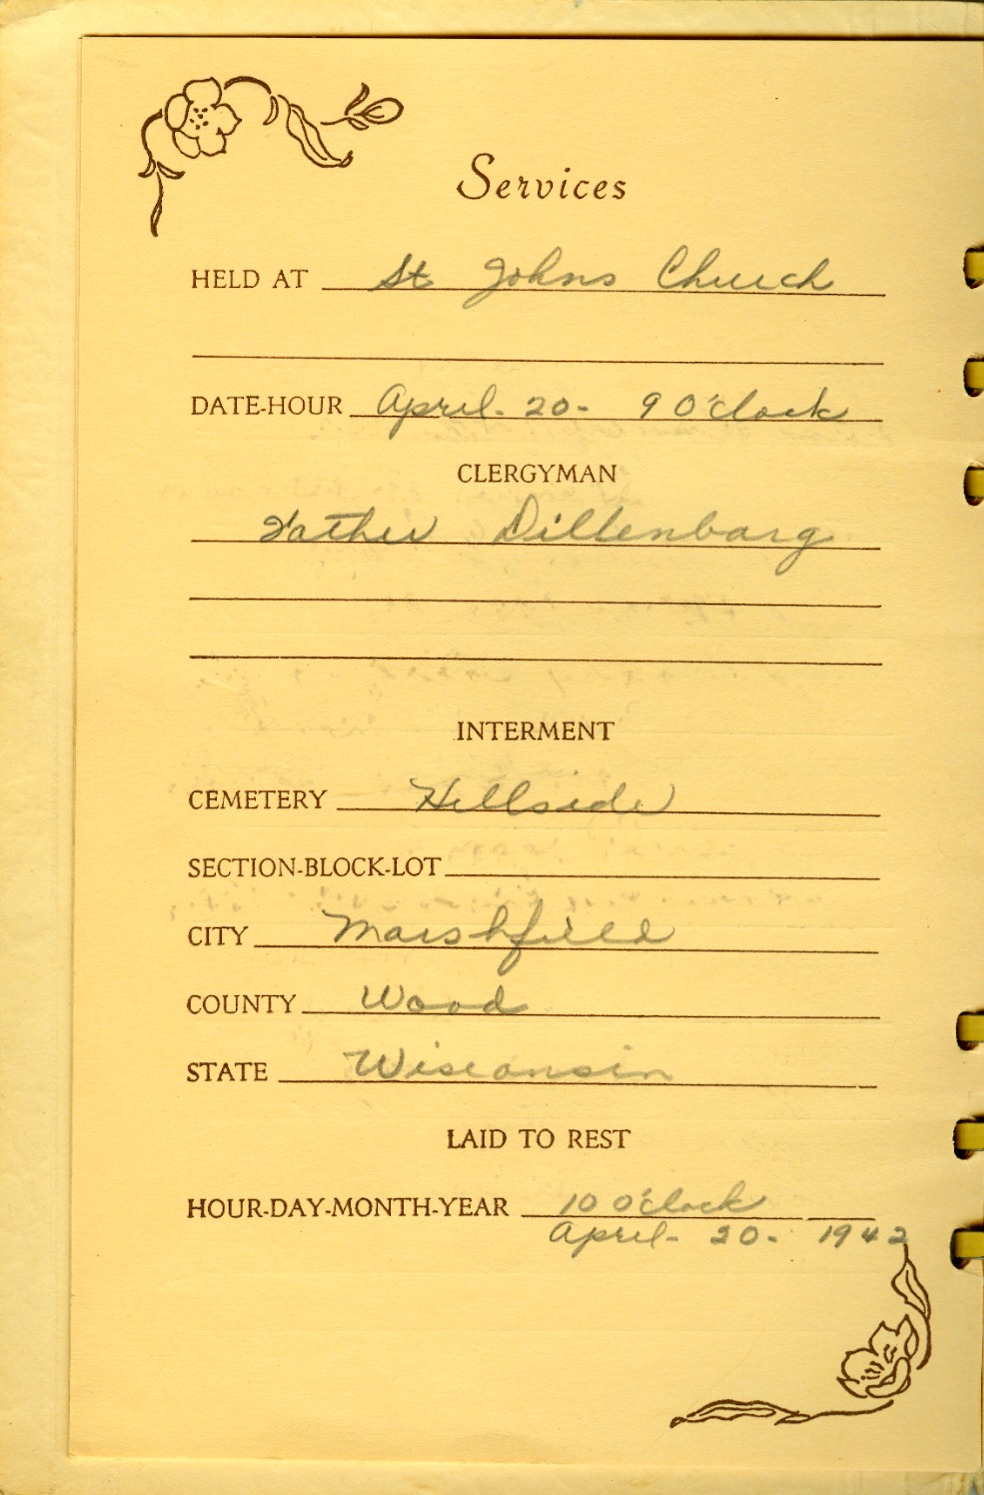 Services
HELD AT St Johns Church
DATE-HOUR April - 20 - 9 O'clock
CLERGYMAN
Father Dillenbarg
INTERMENT
CEMETERY Hillside
SECTION-BLOCK-LOT
CITY Marshfield
COUNTY Wood
STATE Wisconsin
LAID TO REST
HOUR-DAY-MONTH-YEAR 10 O'clock
April - 20 - 1942